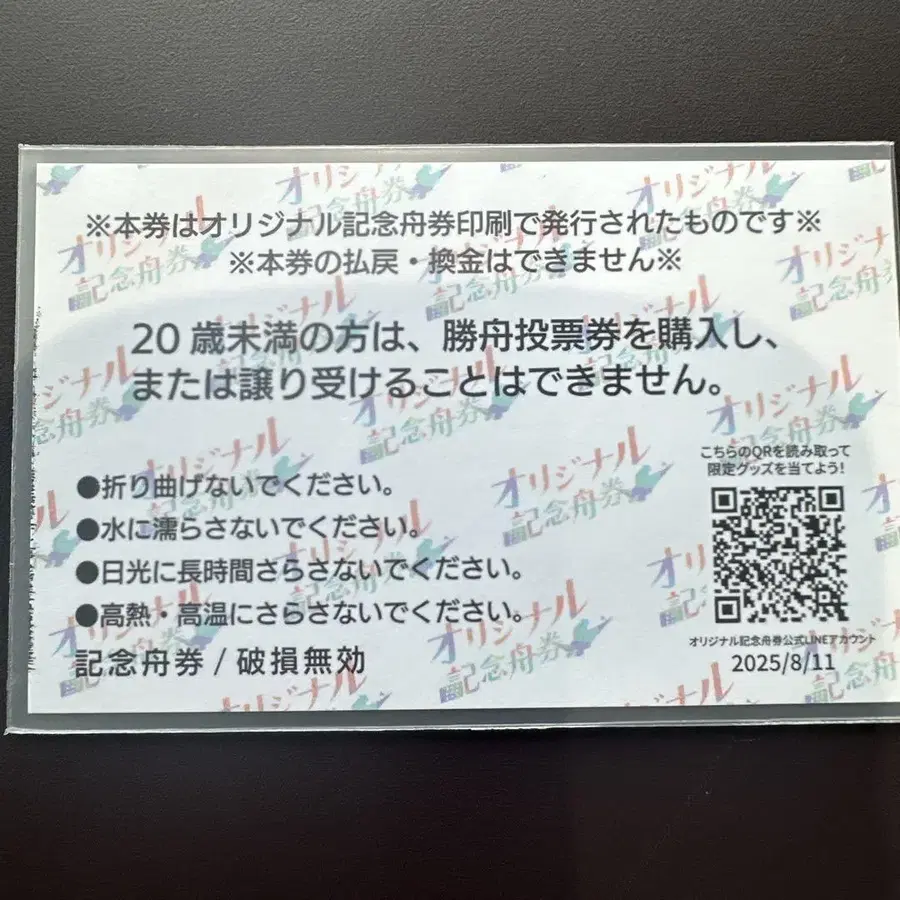 ※本券はオリジナル記念舟券印刷で発行されたものです※
※本券の払戻・換金はできません※
20 歳未満の方は、勝舟投票券を購入し、
または譲り受けることはできません。
●折り曲げないでください。
●水に濡らさないでください。
●日光に長時間さらさないでください。
●高熱・高温にさらさないでください。
記念舟券 / 破損無効
こちらのQRを読み取って
限定グッズを当てよう!
オリジナル記念舟券公式LINEアカウント
2025/8/11
オリジナル
記念舟券